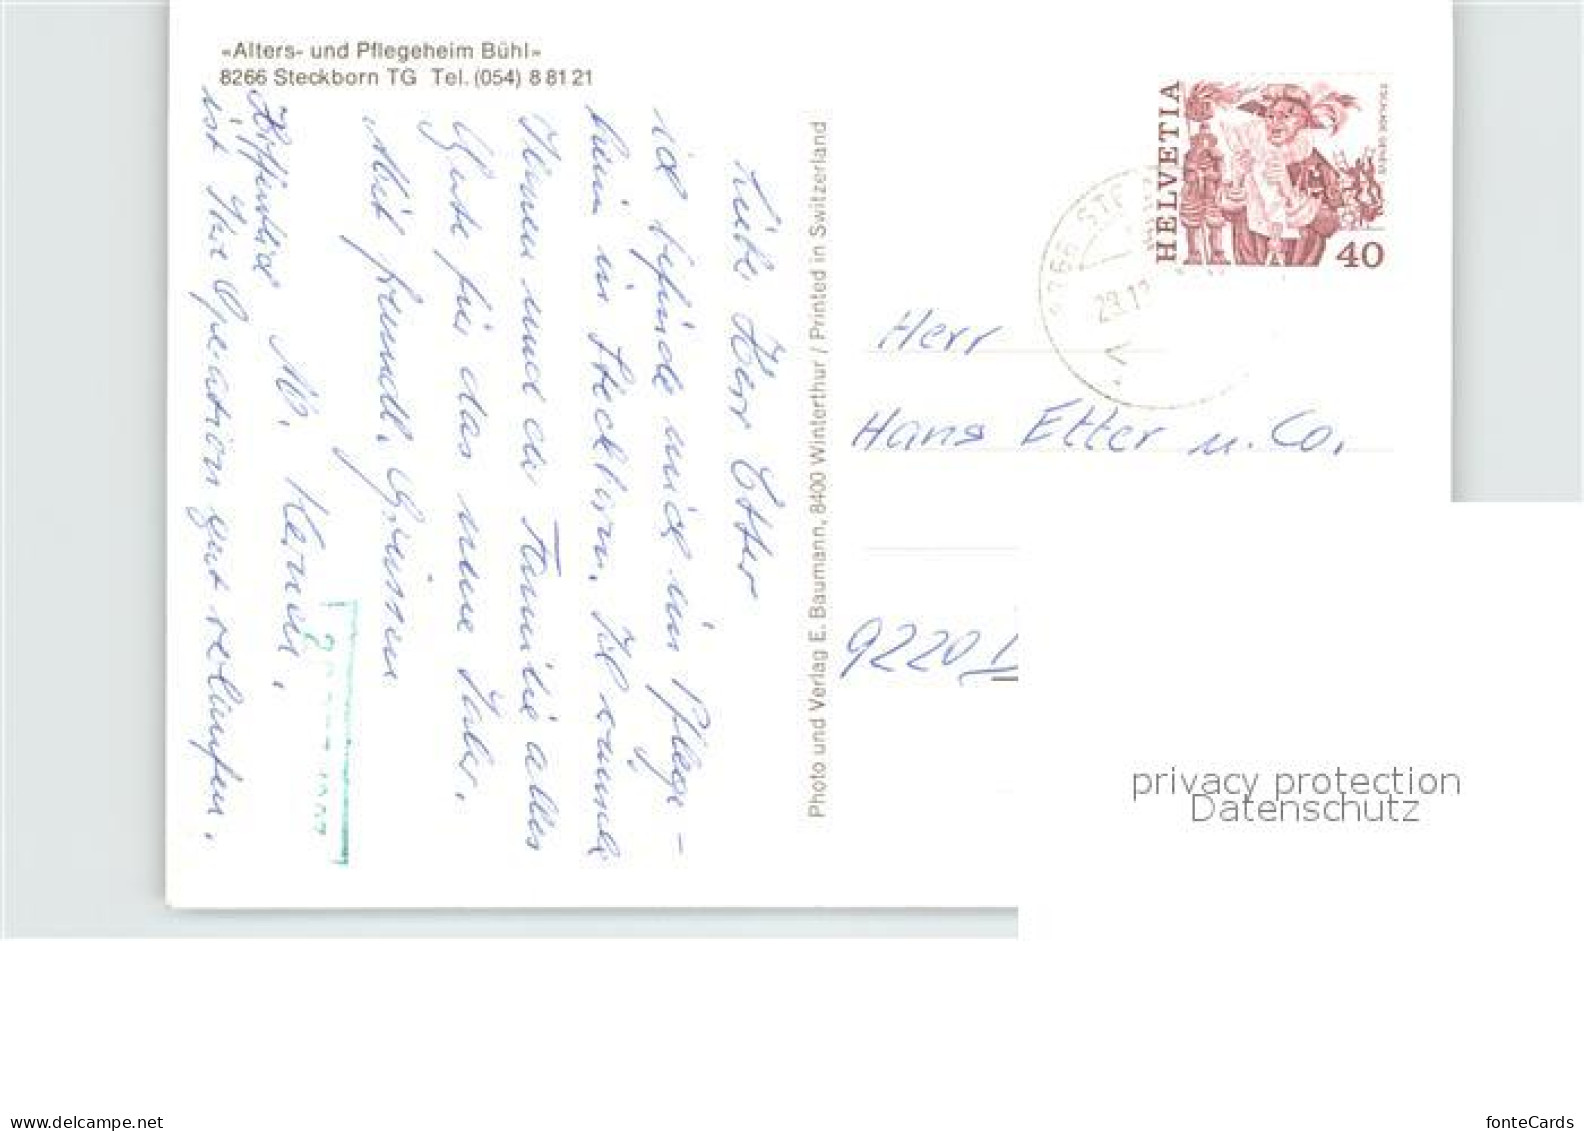 «Alters- und Pflegeheim Bühl»
8266 Steckborn TG Tel. (054) 8 81 21
Liebe Herr Etter
ich befinde mich im Pflege-
heim in Steckborn. Ich wünsche
Ihnen und der Familie alles
Gute für das neue Jahr.
Mit freundl. Grüssen
M. Kerner.
Hoffentlich
ist Ihre Operation gut verlaufen.
Photo und Verlag E. Baumann, 8400 Winterthur / Printed in Switzerland
HELVETIA
ESCALADE GENÈVE
40
8266 STE
29.12
Herr
Hans Etter u. Co.
9220
privacy protection
Datenschutz
www.delcampe.net
fonteCards